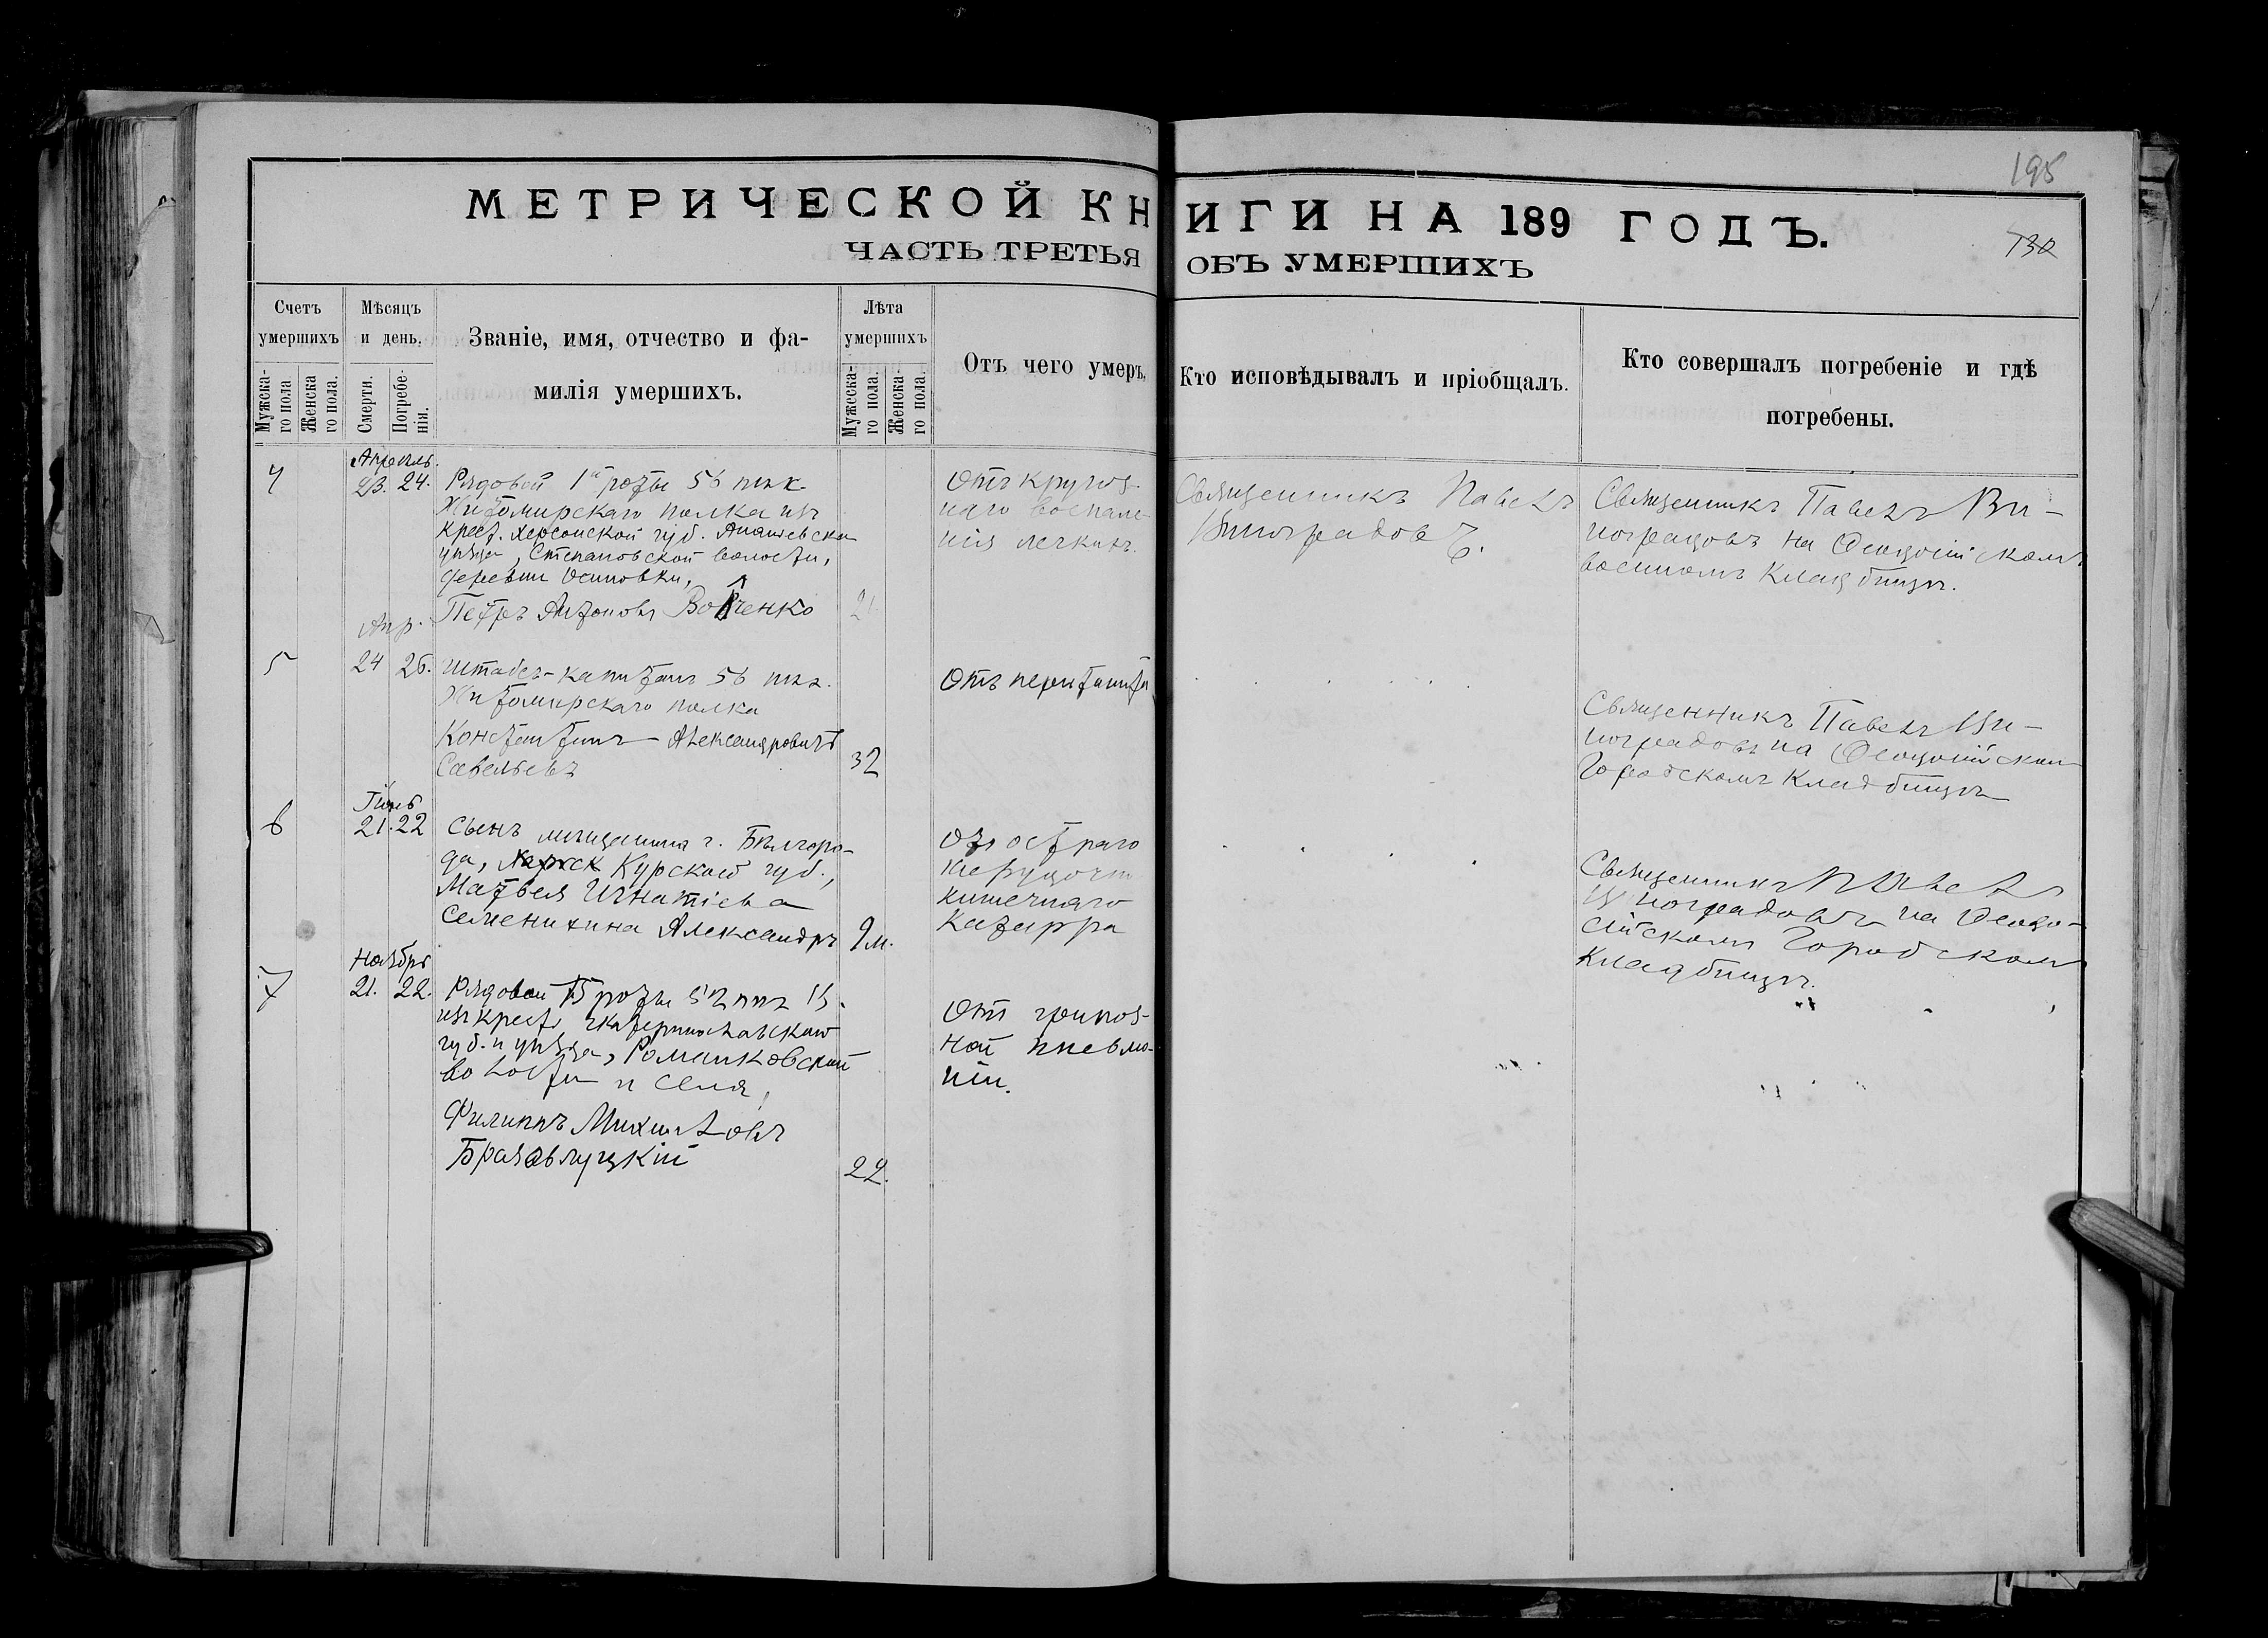 195
МЕТРИЧЕСКОЙ КНИГИ НА 189 ГОДЪ.
732
ЧАСТЬ ТРЕТЬЯ ОБЪ УМЕРШИХЪ
Счетъ умершихъ
Мужескаго пола
Женскаго пола.
Мѣсяцъ и день.
Смерти.
Погребенія.
Званіе, имя, отчество и фамилія умершихъ.
Лѣта умершихъ
Мужескаго пола.
Женскаго пола.
Отъ чего умеръ.
Кто исповѣдывалъ и пріобщалъ.
Кто совершалъ погребеніе и гдѣ погребены.
4
Апрѣль.
23. 24.
Рядовой 1й роты 56 пѣх.
Житомирскаго полка изъ
крест. Херсонской губ. Ананьевска
уѣзда, Степановской волости,
деревни Осиповки,
Петръ Антоновъ
Отъ крупоз-
наго воспале-
нія легкихъ.
Священникъ Павелъ
Виноградовъ.
Священникъ Павелъ Ви-
ноградовъ на Ѳеодосійскомъ
военномъ кладбищѣ.
5
Апр.
24 26.
Штабсъ-капитанъ 56 пѣх.
Житомирскаго полка
Константинъ Александровичъ
Савельевъ
32
Отъ перитонита
Священникъ Павелъ Ви-
ноградовъ на Ѳеодосійском
Городскомъ кладбищѣ
6
Іюль
21. 22
Сынъ мѣщанина г. Бѣлгоро-
да, Курской губ.,
Матвея Игнатіева
Семенихина Александръ
9 м.
Отъ остраго
желудочно
кишечнаго
катарра
Священникъ Павелъ
Виноградовъ на Ѳеодо-
сійскомъ Городском
кладбищѣ.
7
Ноябрь
21. 22.
Рядовой роты 52 пѣх
изъ крест. Екатеринославской
губ. и уѣзда, Романковской
волости и села,
Филиппъ Михайловъ
22.
Отъ крупоз-
ной пневмо-
ніи.